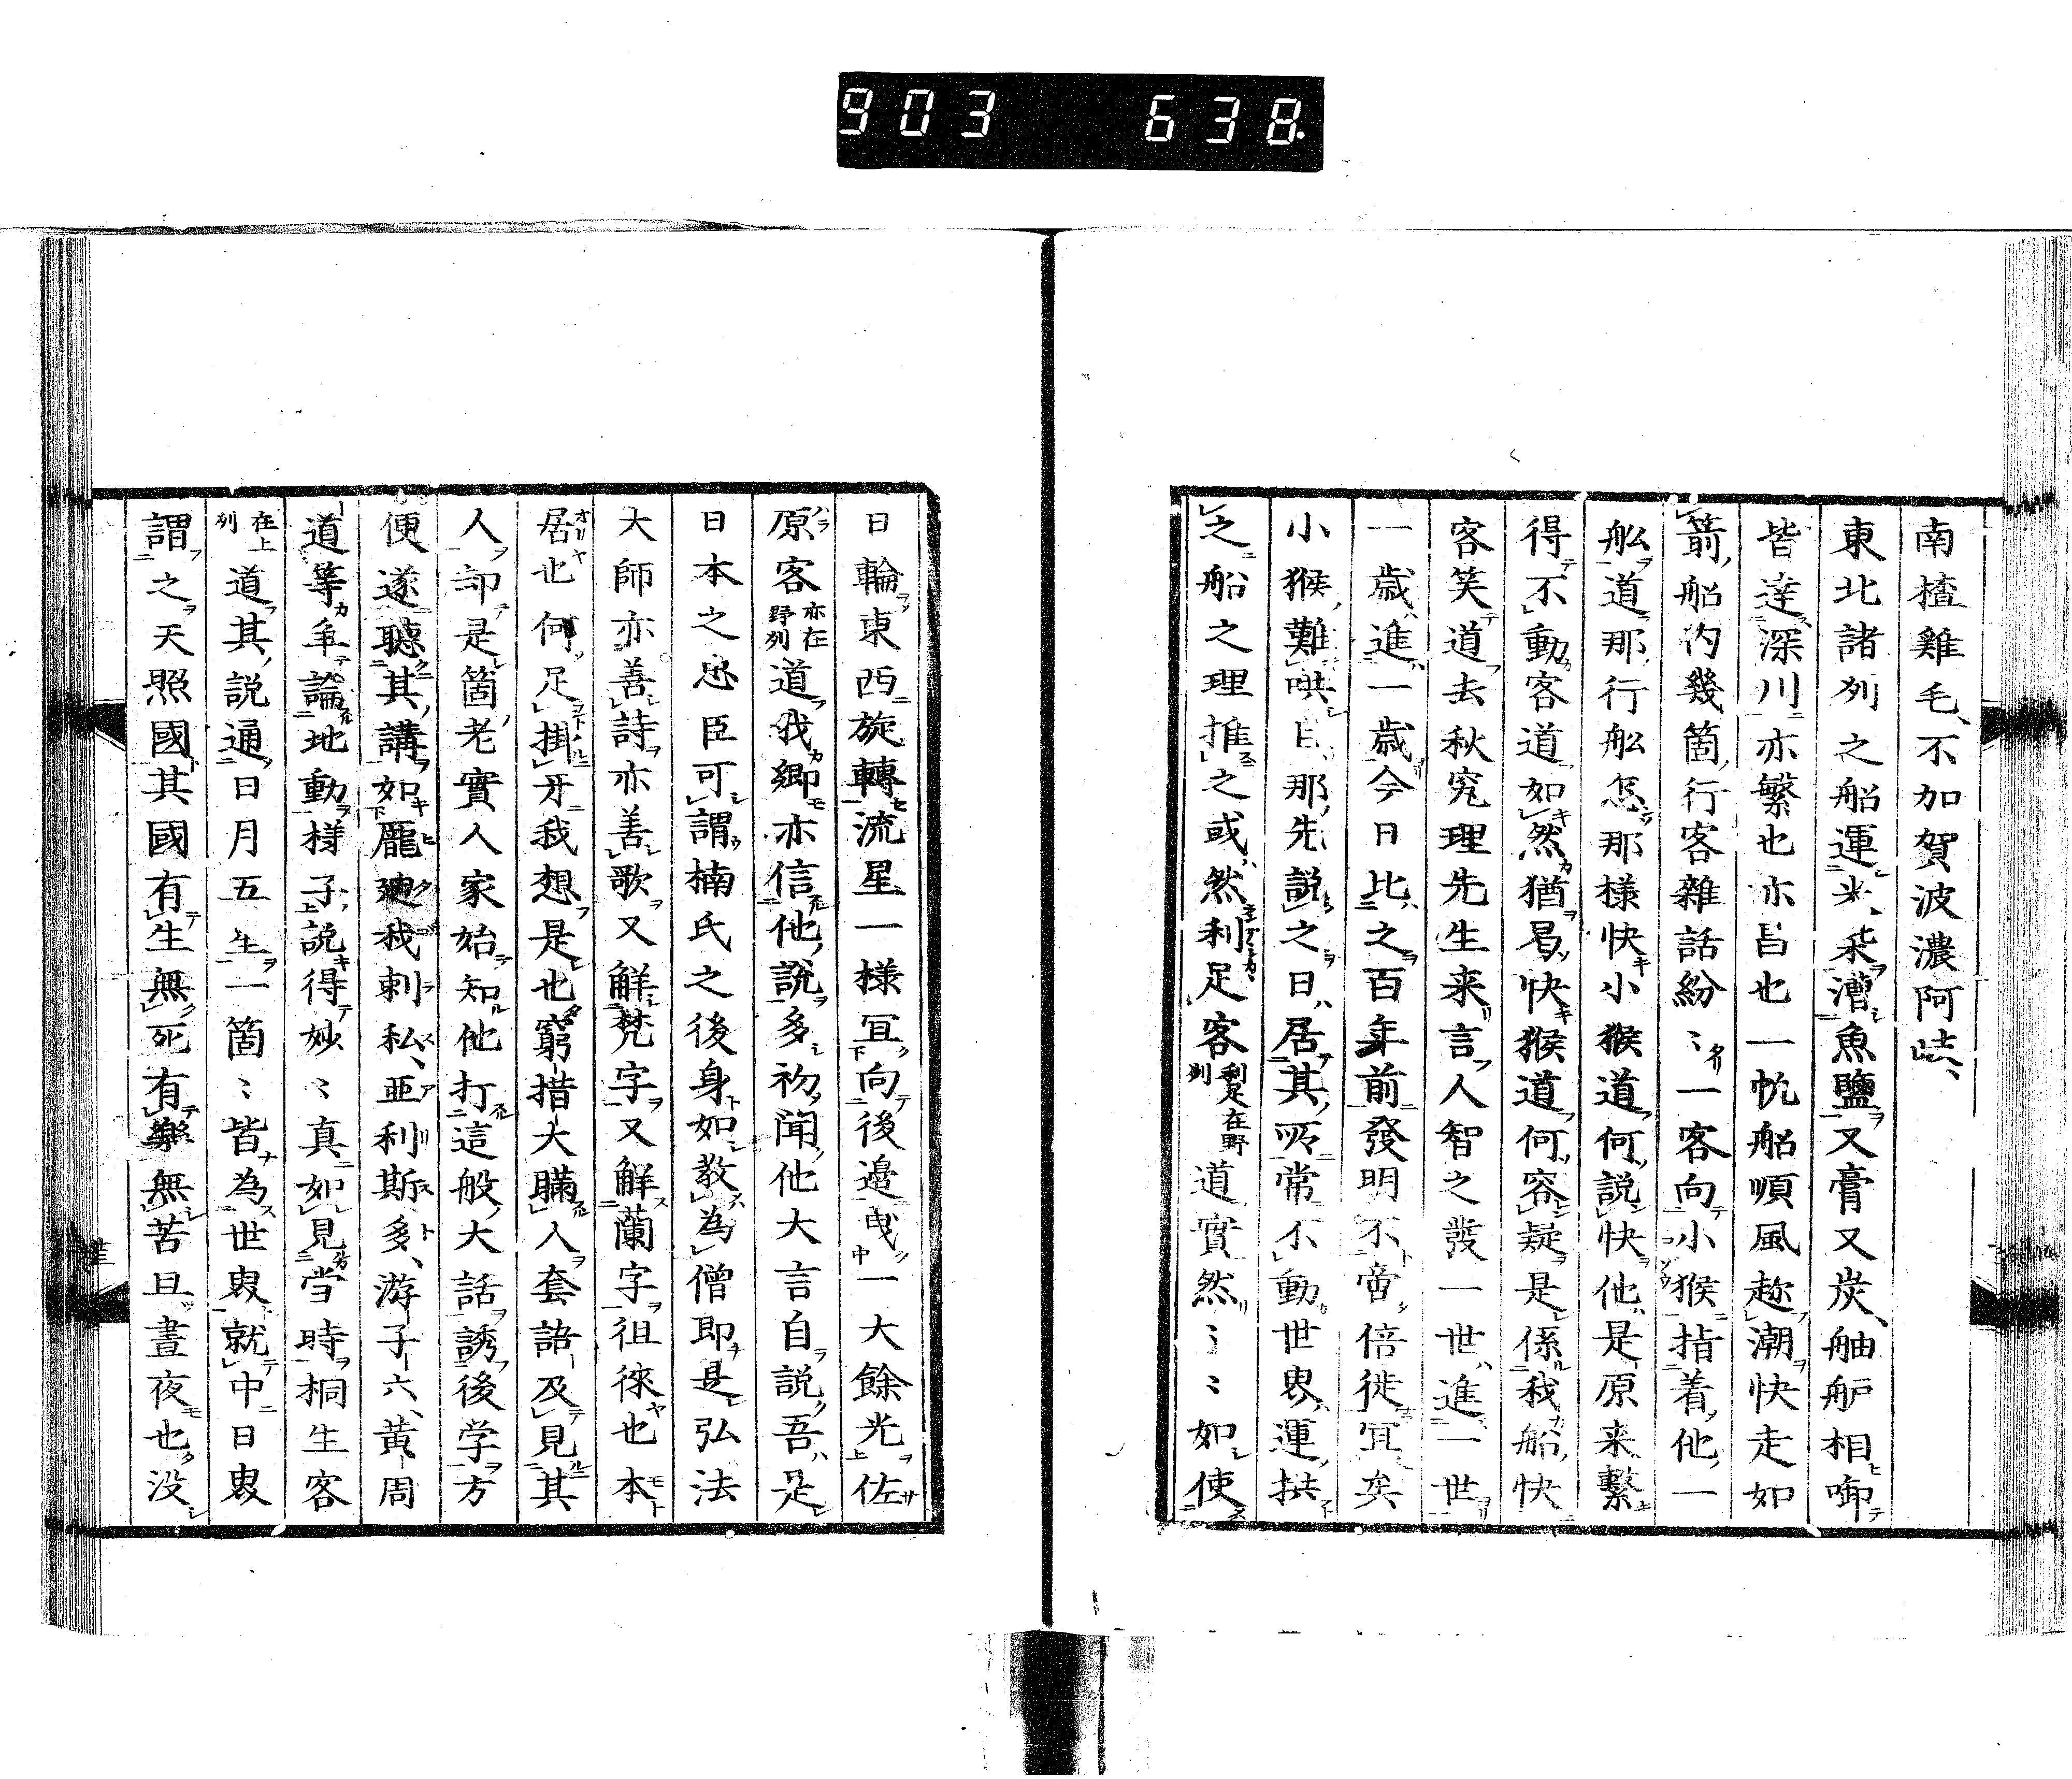 903 638
南楂雞毛、不加賀波濃阿
東北諸列之船運米、釆漕魚鹽又膏又炭、舳舻相啣
皆達深川亦繁也亦旨也一帆船順風趂潮快走如
箭船内幾箇行客雜話紛〻一客向小猴指着他一
舩道那行舩怎那樣快小猴道何説快他是原来繫
得不動客道如然猶曷快猴道何容疑是係我船快
客笑道去秋究理先生来言人智之發一世進一世
一歳進一歳今日比之百年前發明不啻倍徙冝矣
小猴難哄曰那先説之日居其所常不動世界運拱
之船之理推之或然利足客利足在野列道實然〻〻如使
日輪東西旋轉流星一様冝向後邊曳一大餘光佐
原客亦在野列道我郷亦信他説多初聞他大言自説吾是
日本之忠臣可謂楠氏之後身如教為僧即是弘法
大師亦善詩亦善歌又觧梵字又觧蘭字徂徠也本
居也何足掛牙我想是也窮措大瞞人套語及見其
人卻是箇老實人家始知他打這般大話誘後学方
便遂聽其講如龐廸我剌私、亜利斯多、游子六、黄周
道等年論地動樣子説得妙〻真如見當時桐生客
在上列道其説通日月五生一箇〻皆為世界就中日界
謂之天照國其國有生無死有樂無苦且晝夜也没